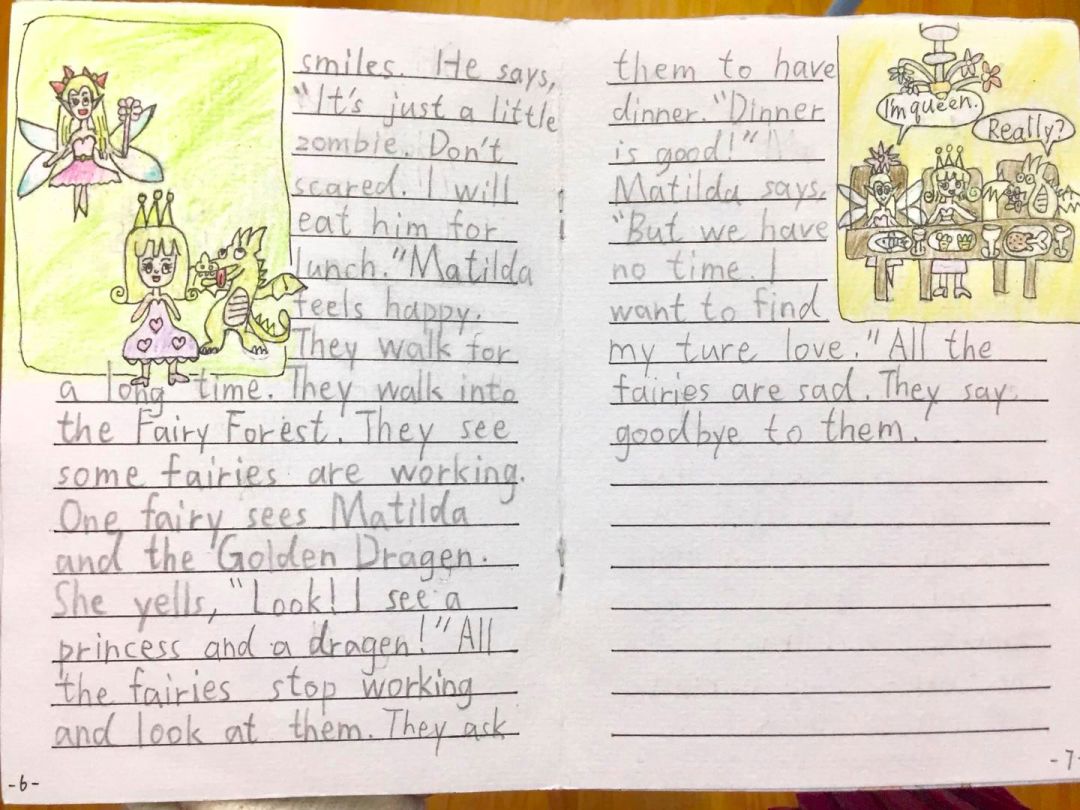 smiles. He says,
"It's just a little
zombie. Don't
scared. I will
eat him for
lunch."Matilda
feels happy.
They walk for
a long time. They walk into
the Fairy Forest. They see
some fairies are working.
One fairy sees Matilda
and the Golden Dragen.
She yells, "Look! I see a
princess and a dragen!"All
the fairies stop working
and look at them. They ask
-6-
I'm queen.
Really?
them to have
dinner."Dinner
is good!"
Matilda says,
"But we have
no time. I
want to find
my ture love."All the
fairies are sad. They say
goodbye to them.
-7-